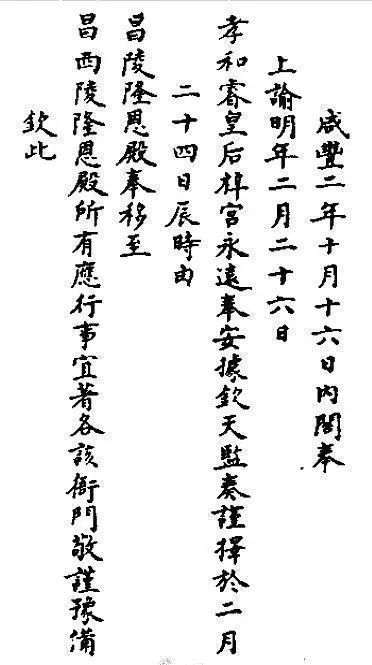 咸豐二年十月十六日內閣奉
上諭明年二月二十六日
孝和睿皇后梓宮永遠奉安據欽天監奏謹擇於二月
二十四日辰時由
昌陵隆恩殿奉移至
昌西陵隆恩殿所有應行事宜著各該衙門敬謹豫備
欽此